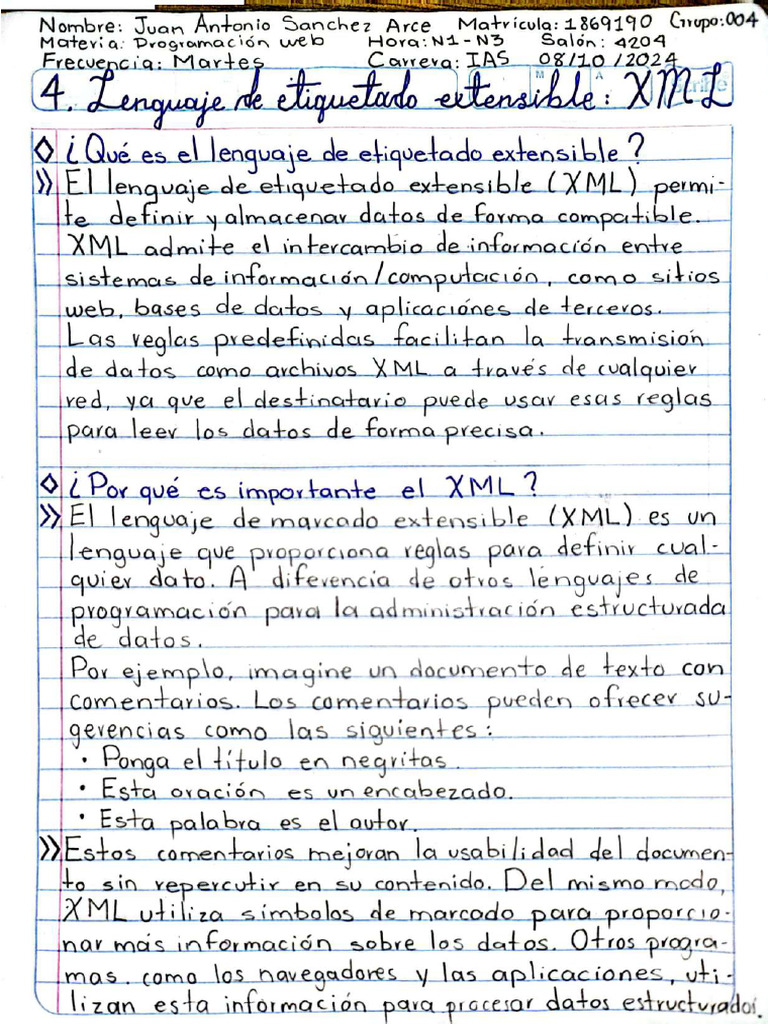 Nombre: Juan Antonio Sanchez Arce Matrícula: 1869190 Grupo: 004
Materia: Programación web Hora: N1-N3 Salón: 4204
Frecuencia: Martes Carrera: IAS 08/10/2024
4. Lenguaje de etiquetado extensible: XML
¿Qué es el lenguaje de etiquetado extensible?
» El lenguaje de etiquetado extensible (XML) permi-
te definir y almacenar datos de forma compatible.
XML admite el intercambio de información entre
sistemas de información/computación, como sitios
web, bases de datos y aplicaciónes de terceros.
Las reglas predefinidas facilitan la transmisión
de datos como archivos XML a través de cualquier
red, ya que el destinatario puede usar esas reglas
para leer los datos de forma precisa.
¿Por qué es importante el XML?
» El lenguaje de marcado extensible (XML) es un
lenguaje que proporciona reglas para definir cual-
quier dato. A diferencia de otros lenguajes de
programación para la administración estructurada
de datos.
Por ejemplo, imagine un documento de texto con
comentarios. Los comentarios pueden ofrecer su-
gerencias como las siguientes:
• Ponga el título en negritas.
• Esta oración es un encabezado.
• Esta palabra es el autor.
» Estos comentarios mejoran la usabilidad del documen-
to sin repercutir en su contenido. Del mismo modo,
XML utiliza símbolos de marcado para proporcio-
nar más información sobre los datos. Otros progra-
mas. como los navegadores y las aplicaciones, uti-
lizan esta información para procesar datos estructurados.